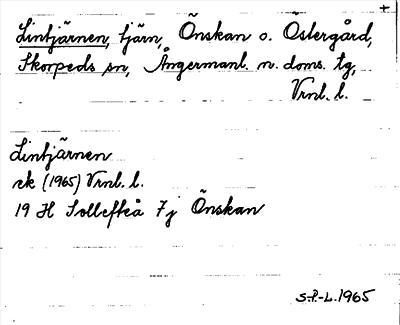 +
Lintjärnen, tjärn, Önskan o. Östergård,
Skorpeds sn, Ångermanl. n. doms. tg,
Vrnl. l.
Lintjärnen
ek (1965) Vrnl. l.
19 H Sollefteå 7j Önskan
S.P.-L. 1965